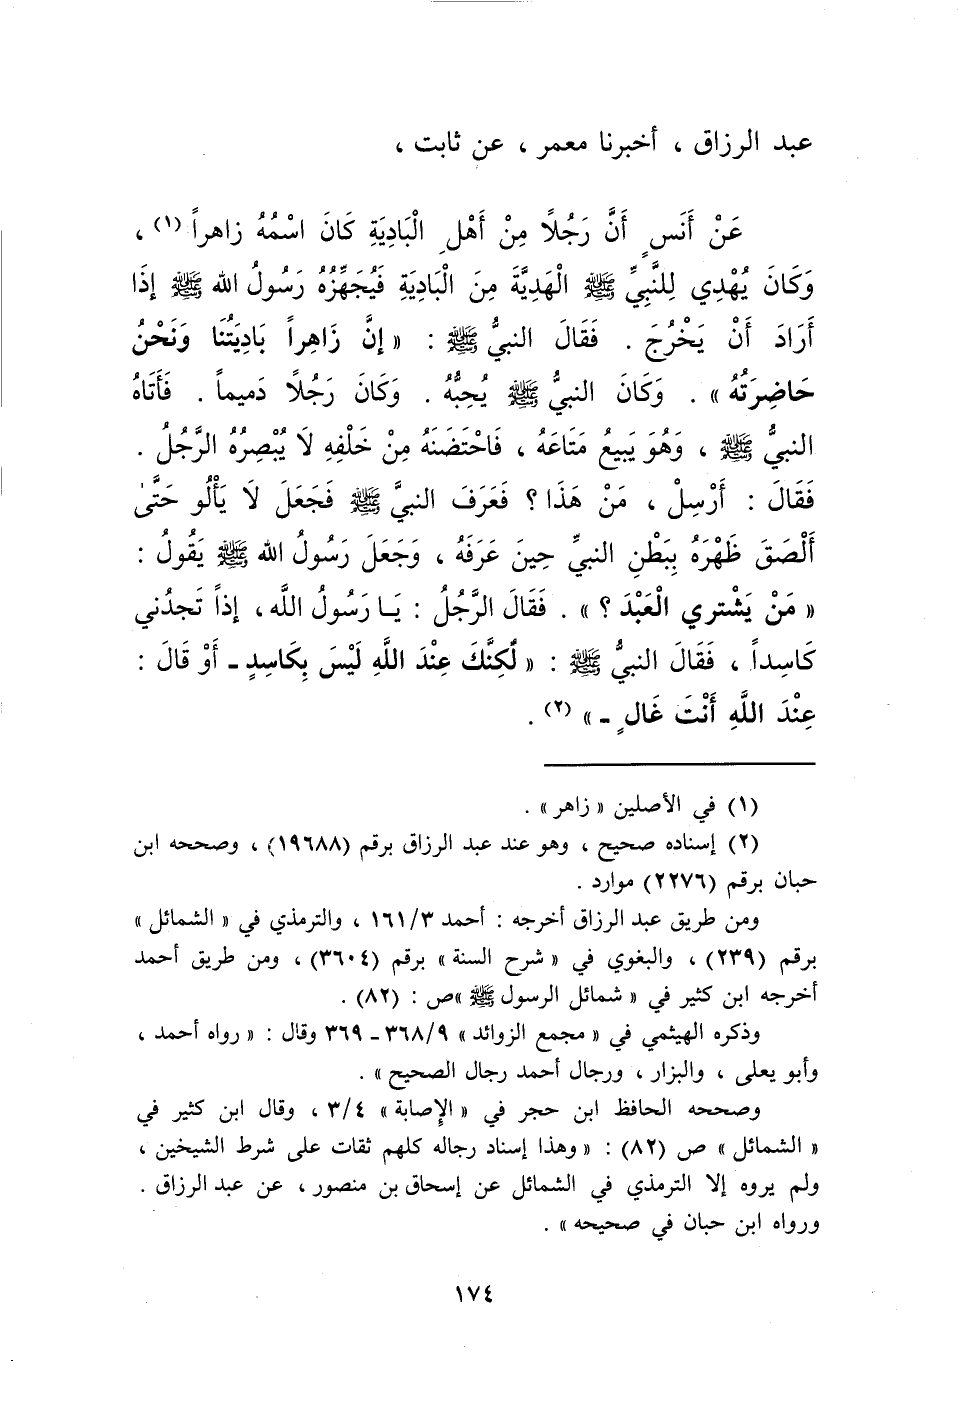 عبد الرزاق ، أخبرنا معمر ، عن ثابت ،
عَنْ أَنَسٍ أَنَّ رَجُلًا مِنْ أَهْلِ الْبَادِيَةِ كَانَ اسْمُهُ زاهراً (١) ،
وَكَانَ يُهْدِي لِلنَّبِيِّ ﷺ الْهَدِيَّةَ مِنَ الْبَادِيَةِ فَيُجَهِّزُهُ رَسُولُ الله ﷺ إذَا
أَرَادَ أَنْ يَخْرُجَ . فَقَالَ النبيُّ ﷺ : « إنَّ زَاهِراً بَادِيَتُنَا وَنَحْنُ
حَاضِرَتُهُ » . وَكَانَ النبيُّ ﷺ يُحِبُّهُ . وَكَانَ رَجُلًا دَميماً . فَأَتَاهُ
النبيُّ ﷺ ، وَهُوَ يَبِيعُ مَتَاعَهُ ، فَاحْتَضَنَهُ مِنْ خَلْفِهِ لَا يُبْصِرُهُ الرَّجُلُ .
فَقَالَ : أَرْسِلْ ، مَنْ هَذَا ؟ فَعَرَفَ النبيَّ ﷺ فَجَعَلَ لَا يَأْلُو حَتَّىٰ
أَلْصَقَ ظَهْرَهُ بِبَطْنِ النبيِّ حِينَ عَرَفَهُ ، وَجَعَلَ رَسُولُ الله ﷺ يَقُولُ :
« مَنْ يَشْتري الْعَبْدَ ؟ » . فَقَالَ الرَّجُلُ : يَا رَسُولُ اللَّه ، إذاً تَجدُني
كَاسِداً ، فَقَالَ النبيُّ ﷺ : « لَكِنَّكَ عِنْدَ اللَّهِ لَيْسَ بِكَاسِدٍ - أَوْ قَالَ :
عِنْدَ اللَّهِ أَنْتَ غَالٍ - » (٢) .
(١) في الأصلين « زاهر » .
(٢) إسناده صحيح ، وهو عند عبد الرزاق برقم (١٩٦٨٨) ، وصححه ابن
حبان برقم (٢٢٧٦) موارد .
ومن طريق عبد الرزاق أخرجه : أحمد ١٦١/٣ ، والترمذي في « الشمائل »
برقم (٢٣٩) ، والبغوي في « شرح السنة » برقم (٣٦٠٤) ، ومن طريق أحمد
أخرجه ابن كثير في « شمائل الرسول ﷺ »ص : (٨٢) .
وذكره الهيثمي في « مجمع الزوائد » ٣٦٨/٩ - ٣٦٩ وقال : « رواه أحمد ،
وأبو يعلى ، والبزار ، ورجال أحمد رجال الصحيح » .
وصححه الحافظ ابن حجر في « الإصابة » ٣/٤ ، وقال ابن كثير في
« الشمائل » ص (٨٢) : « وهذا إسناد رجاله كلهم ثقات على شرط الشيخين ،
ولم يروه إلا الترمذي في الشمائل عن إسحاق بن منصور ، عن عبد الرزاق .
ورواه ابن حبان في صحيحه » .
١٧٤